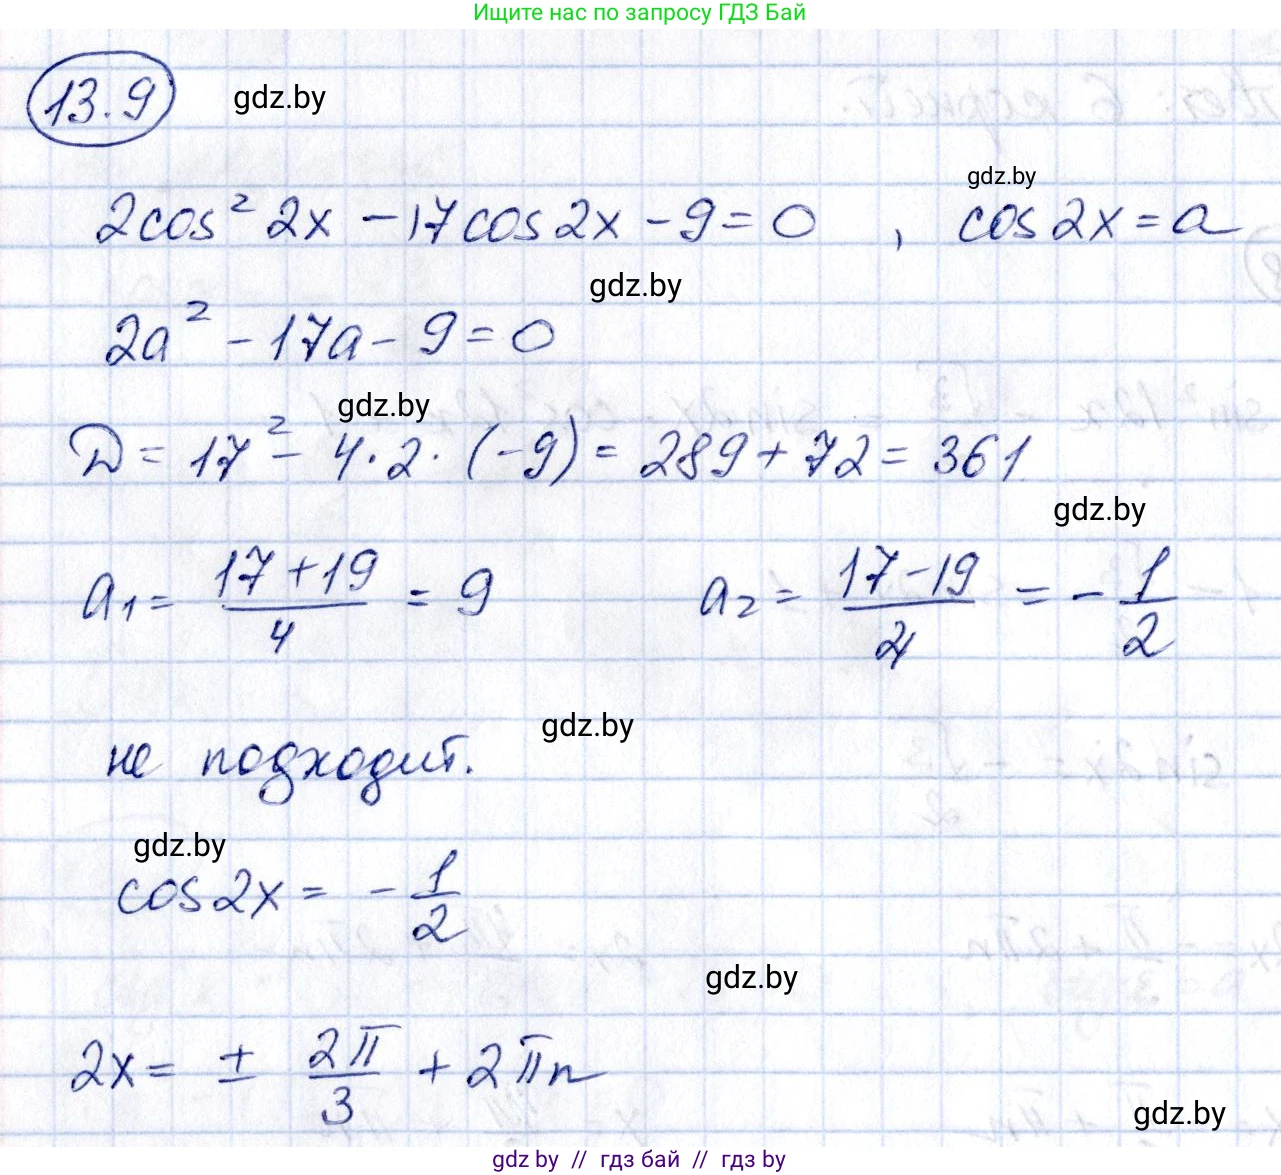 Ищите нас по запросу ГДЗ Бай
13.9 gdz.by
gdz.by
2cos² 2x - 17cos2x - 9 = 0 , cos2x = a
gdz.by
2a² - 17a - 9 = 0
gdz.by
D = 17² - 4·2·(-9) = 289 + 72 = 361
gdz.by
a₁ = (17+19)/4 = 9 a₂ = (17-19)/4 = -1/2
gdz.by
не подходит.
gdz.by
cos2x = -1/2
gdz.by
2x = ± 2π/3 + 2πn
gdz.by
gdz by // гдз бай // гдз by